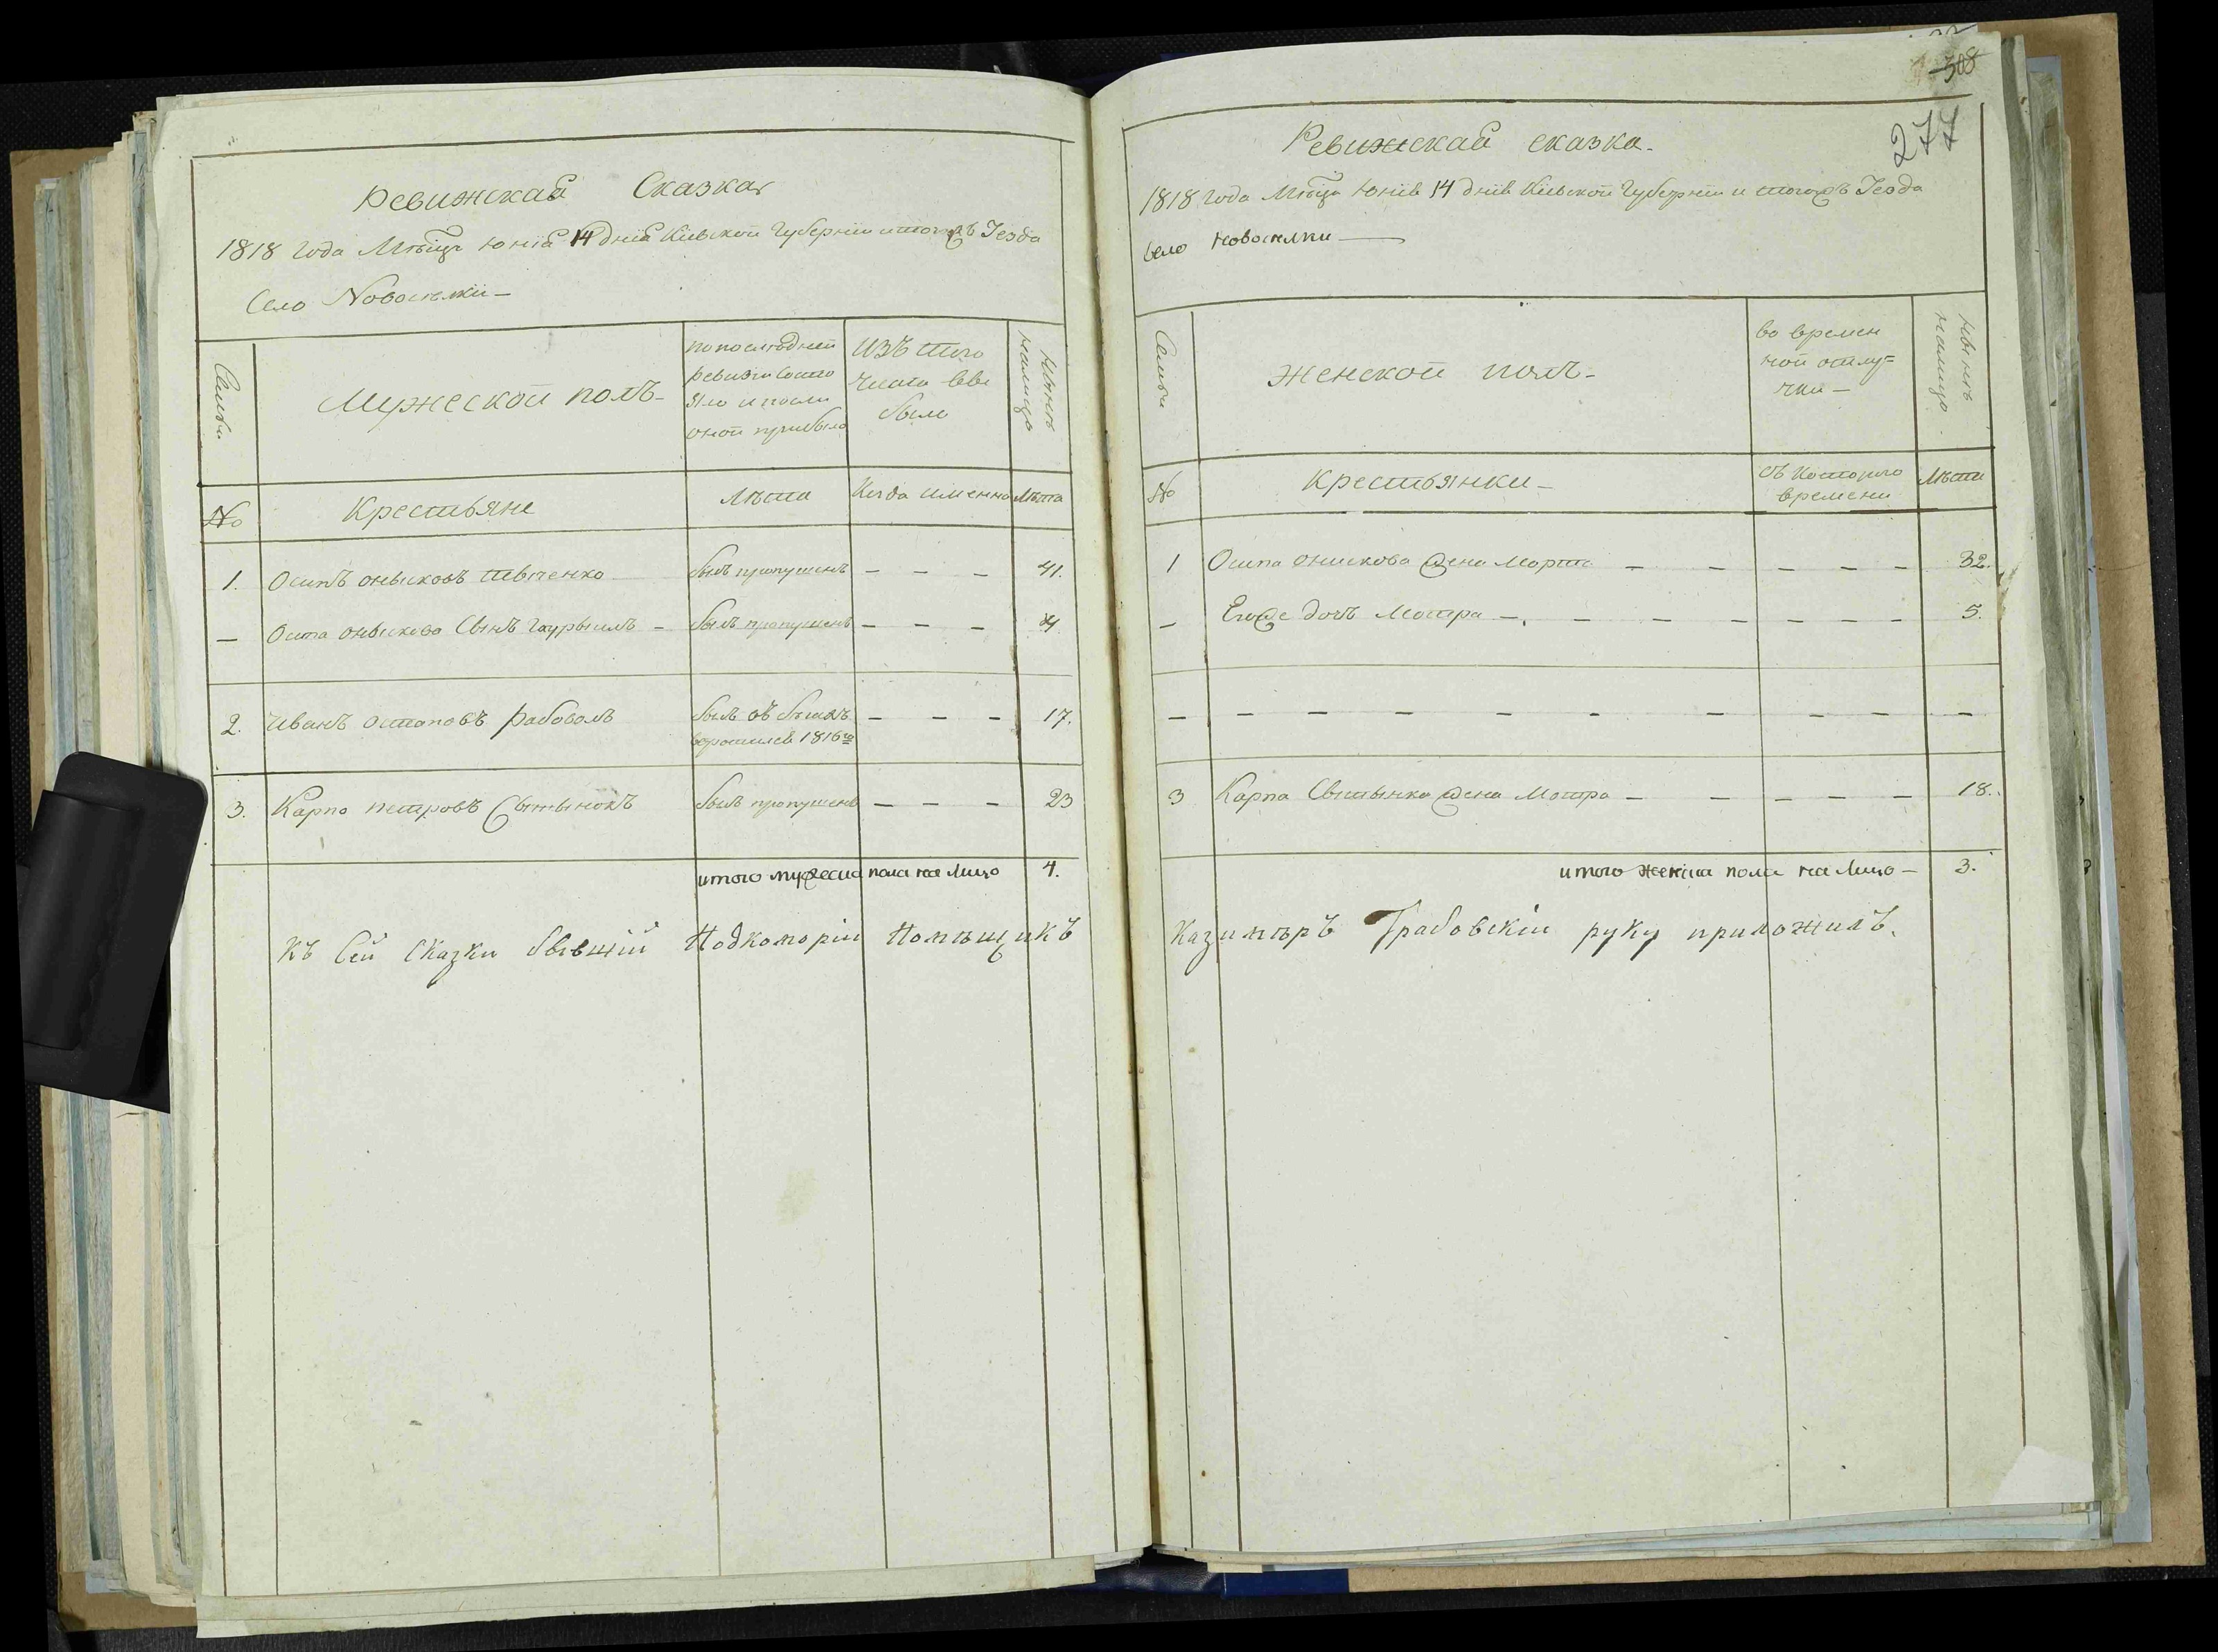 Ревижская Сказка
1818 года Мѣца Юнія 14 днія Кіевской Губерніи итогожъ Уезда
Село Новоселки —
Семьи
Мужеской полъ —
по последней
ревизіи состо
яло и после
оной прибыло
Изъ того
числа выбы
было
Нынѣ
налицо
№
Крестьяне
Лѣта
Когда именно
Лѣта
1. Осипъ онысковъ Шевченко былъ пропущенъ — — — 41.
— Осипа оныскова Сынъ Гаурыилъ — былъ пропущенъ — — — 4
2. Иванъ остаповъ Рабоволъ былъ въ бѣгахъ — — — 17.
воротился 1816го
3. Карпо петровъ Свитынокъ былъ пропущенъ — — — 23
итого мужеска пола на лицо 4.
Къ Сей Сказки бывшій Подкоморій Помѣщикъ
308
277
Ревижская сказка.
1818 года Мѣца Юнія 14 днія Кіевской Губерніи и тогожъ Уезда
Село Новоселки —
Семьи
Женской полъ —
во времен
ной отлу=
чки —
Нынѣ
налицо.
№
Крестьянки —
Съ Которого
времени
Лѣта
1 Осипа онискова жена Марта — — — — — — 32.
— Егоже дочь Мотра — — — — — — — — 5.
— — — — — — — — — —
3 Карпа Свитынка жена Мотра — — — — — 18.
итого женска пола на лицо — 3.
Казимѣръ Грабовскій руку приложилъ.